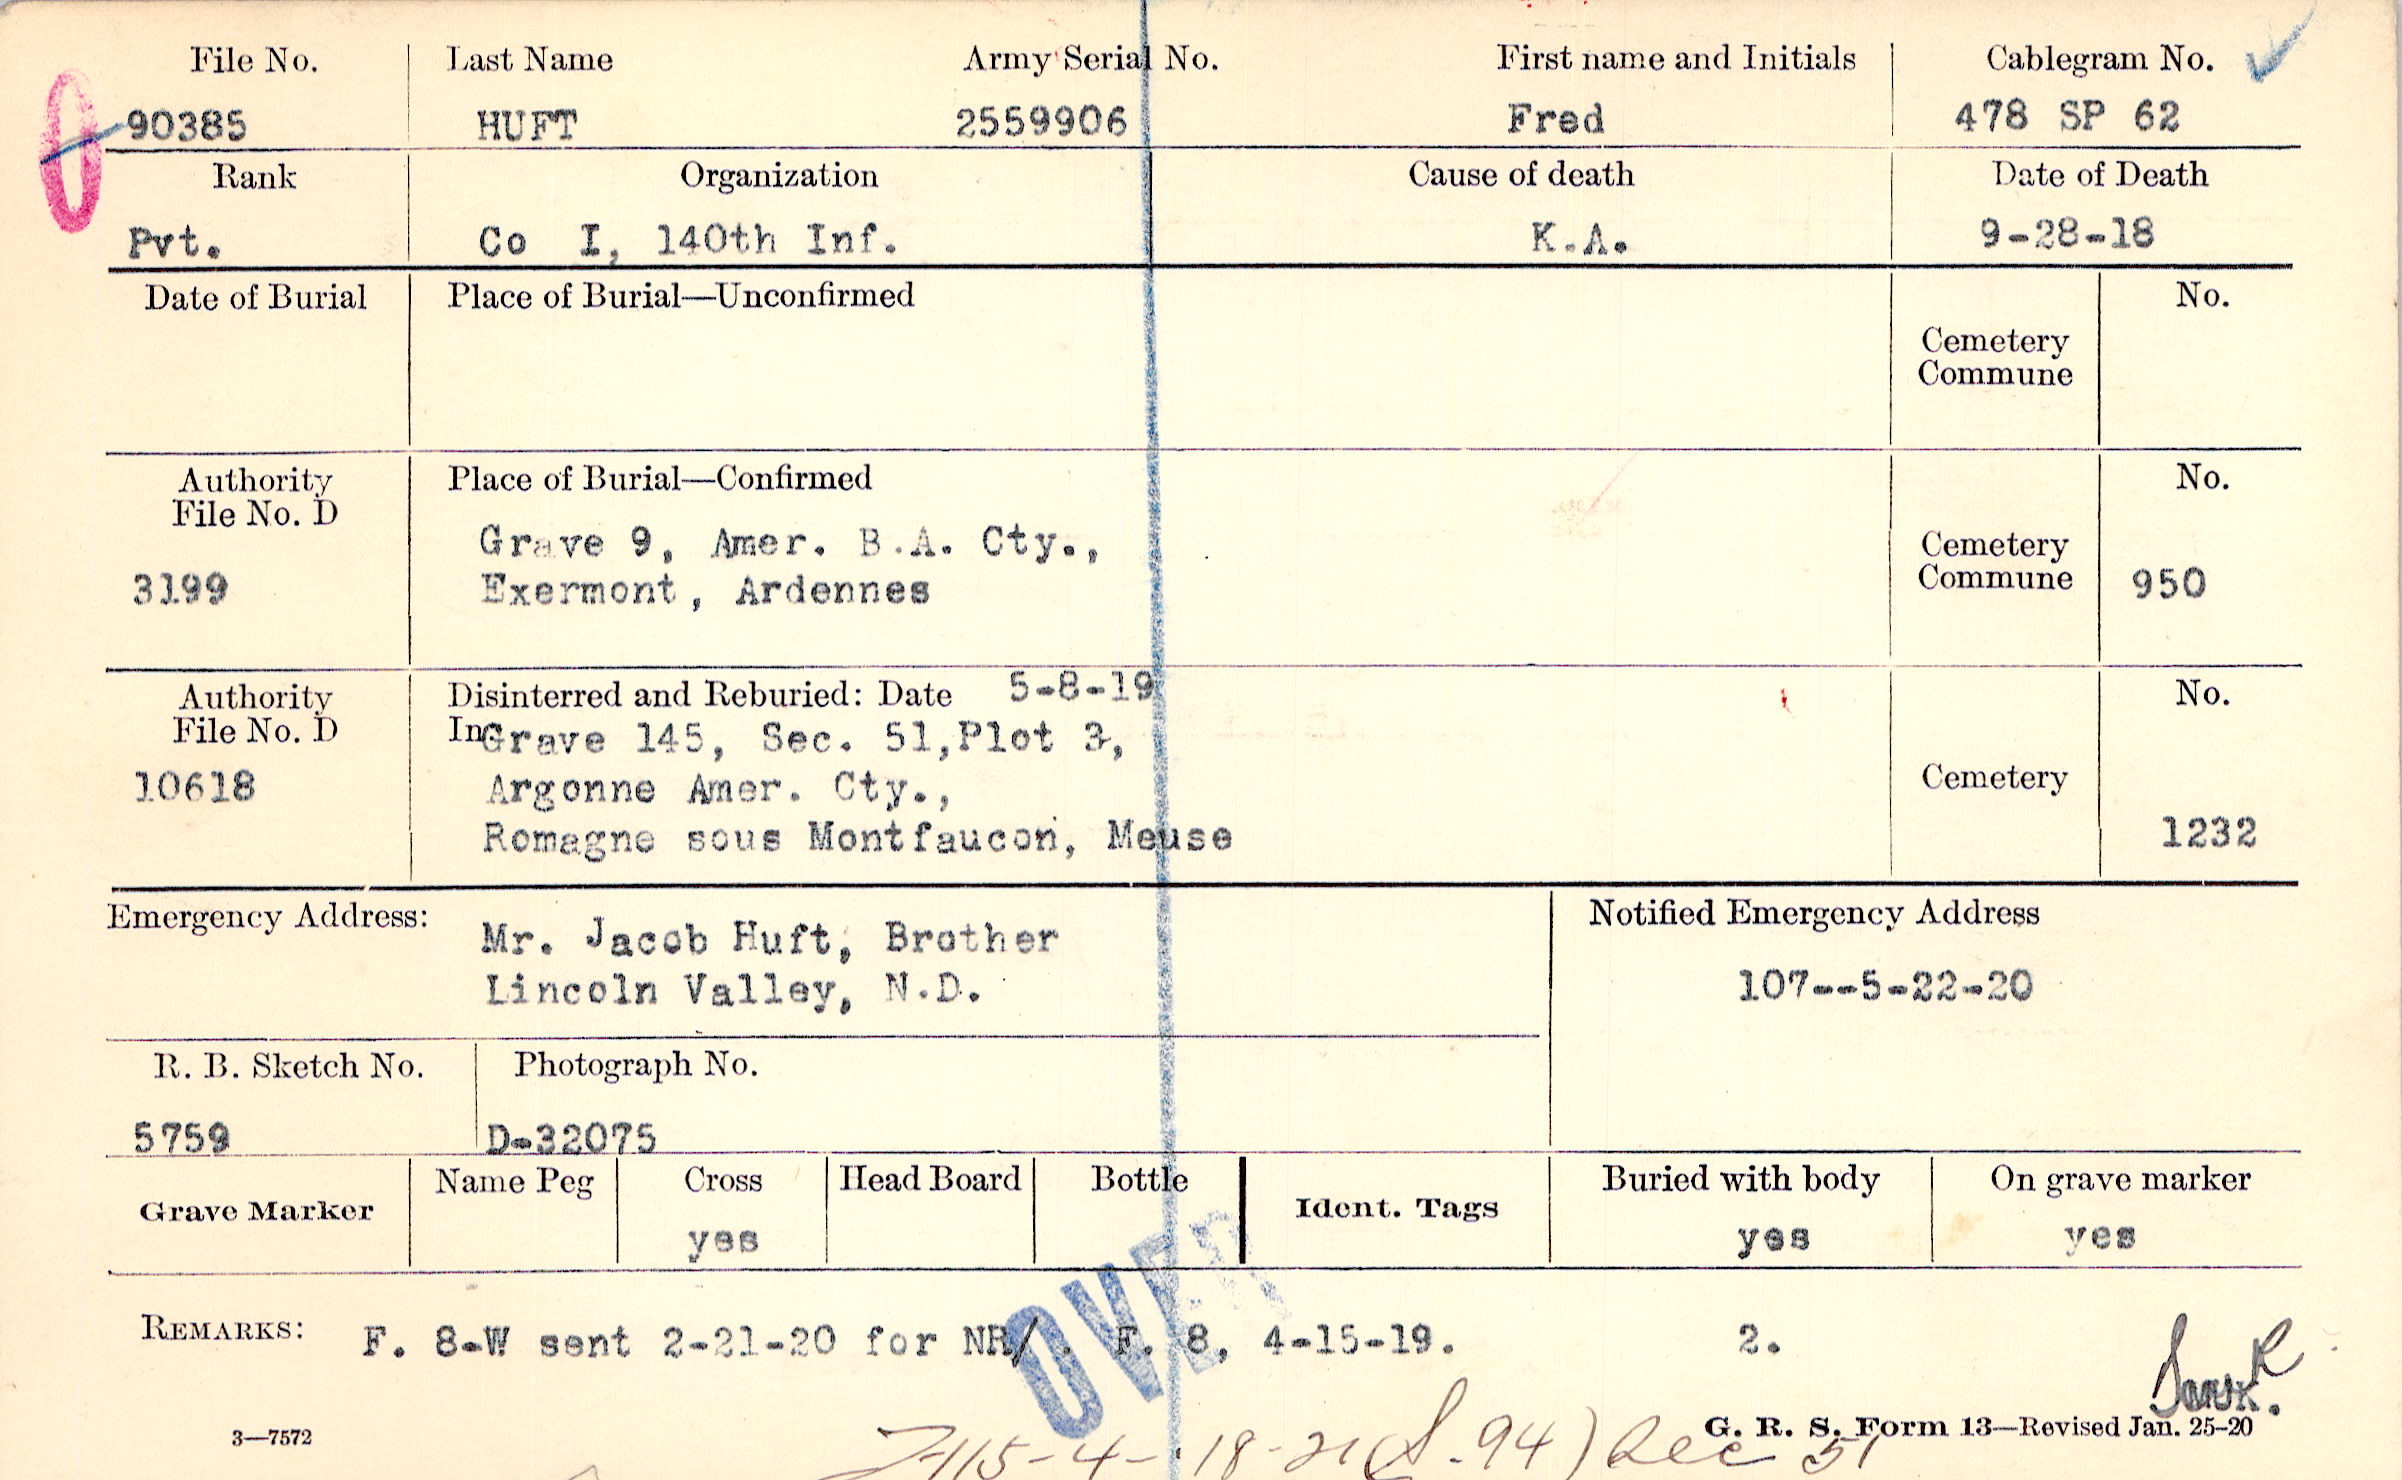 File No. Last Name Army Serial No. First name and Initials Cablegram No.
90385 HUFT 2559906 Fred 478 SP 62
Rank Organization Cause of death Date of Death
Pvt. Co I, 140th Inf. K.A. 9-28-18
Date of Burial Place of Burial—Unconfirmed No.
Cemetery
Commune
Authority Place of Burial—Confirmed No.
File No. D
Grave 9, Amer. B.A. Cty., Cemetery
3199 Exermont, Ardennes Commune 950
Authority Disinterred and Reburied: Date 5-8-19 No.
File No. D In Grave 145, Sec. 51,Plot 3,
10618 Argonne Amer. Cty., Cemetery
Romagne sous Montfaucon, Meuse 1232
Emergency Address: Mr. Jacob Huft, Brother Notified Emergency Address
Lincoln Valley, N.D. 107--5-22-20
R. B. Sketch No. Photograph No.
5759 D-32075
Grave Marker Name Peg Cross Head Board Bottle Ident. Tags Buried with body On grave marker
yes yes yes
OVER
REMARKS: F. 8-W sent 2-21-20 for NR/. F. 8, 4-15-19. 2.
3—7572 G. R. S. Form 13—Revised Jan. 25-20
115-4-18-21 (S.94) Dec 51